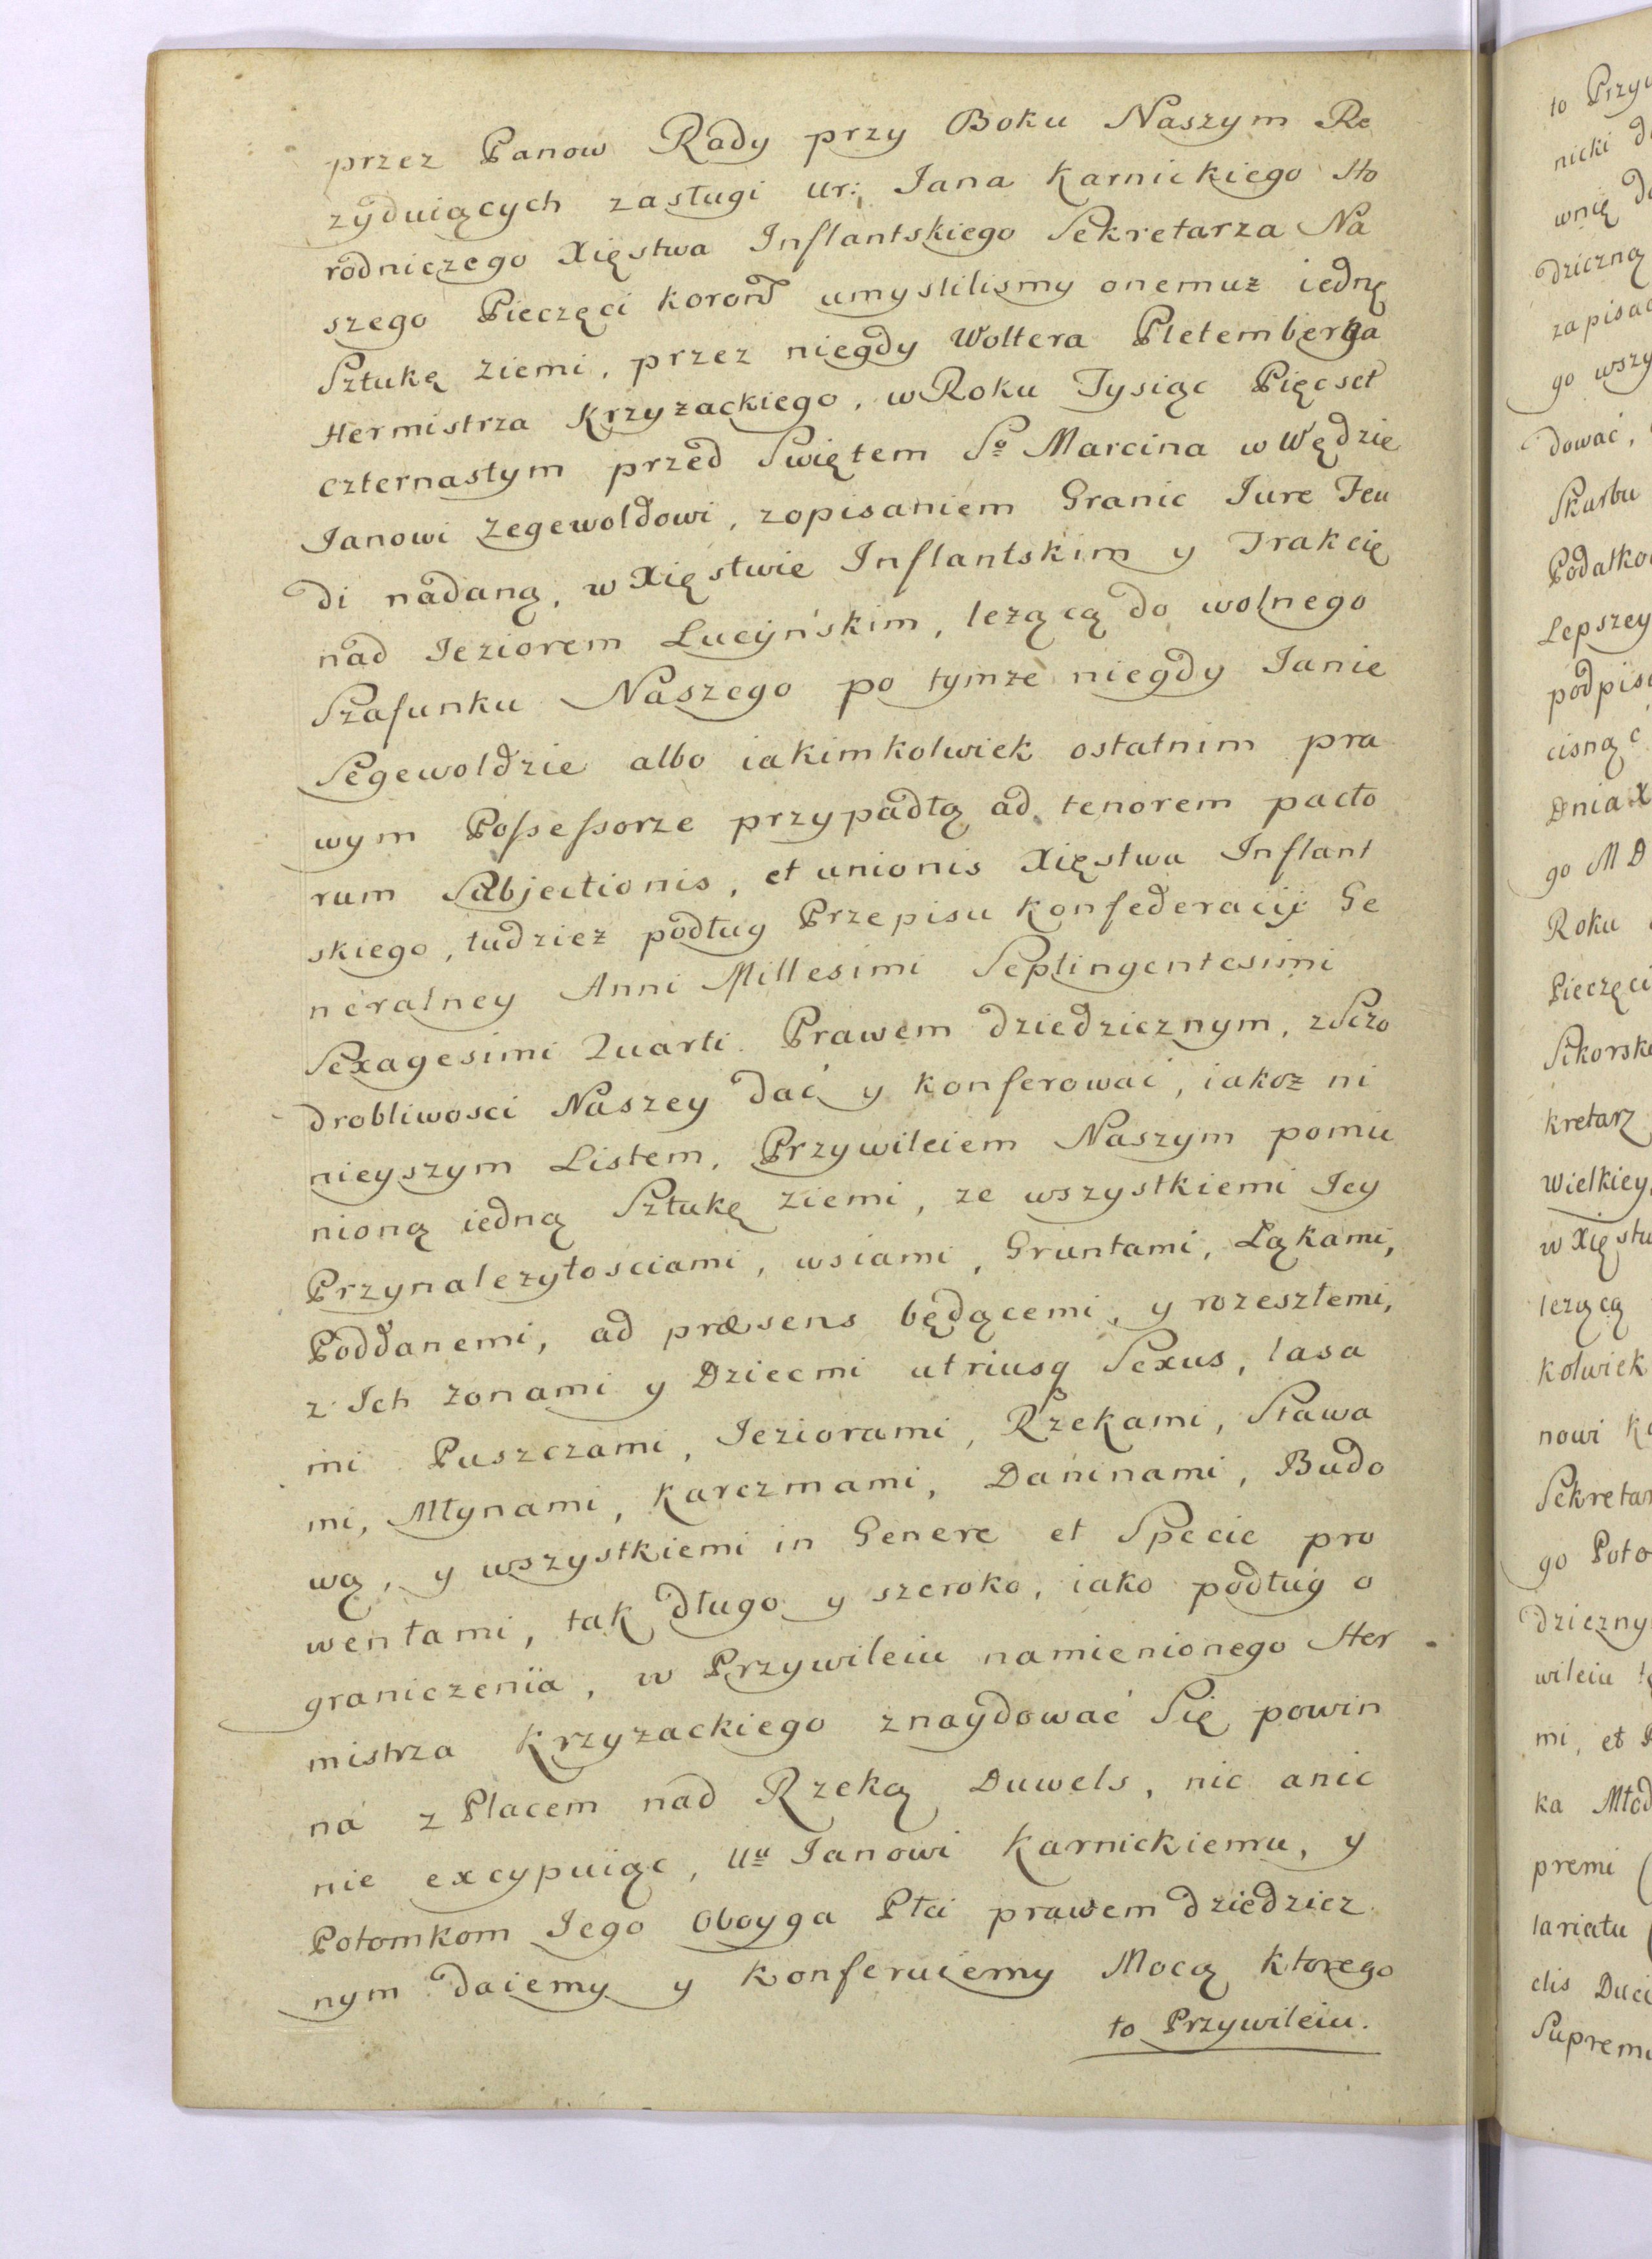 przez Panow Rady przy Boku Naszym Re
zyduiących zasługi Ur: Jana Karnickiego Ho
rodniczego Xięstwa Inflantskiego Sekretarza Na
szego Pieczęci koron umyslilismy onemuz iednę
Sztukę ziemi, przez niegdy Woltera Pletemberga
Hermistrza Krzyzackiego, w Roku Tysiąc Pięcset
czternastym przed Swiętem So Marcina w Wędzie
Janowi Zegewoldowi, zopisaniem Granic Jure Feu
di nadaną, w Xięstwie Inflantskim y Trakcię
nad Jeziorem Lucyńskim, lezącą do wolnego
Szafunku Naszego po tymze niegdy Janie
Segewoldzie albo iakimkolwiek ostatnim pra
wym Possessorze przypadłą ad tenorem pacto
rum Subjectionis, et unionis Xięstwa Inflant
skiego, tudziez podług Przepisu Konfederacij Ge
neralney Anni Millesimi Septingentesimi
Sexagesimi Quarti. Prawem dziedzicznym, z Sczo
drobliwosci Naszey dać y konferować, iakoz ni
nieyszym Listem, Przywileiem Naszym pomie
nioną iedną Sztukę ziemi, ze wszystkiemi Jey
Przynalezytosciami, wsiami, Gruntami, Ląkami,
Poddanemi, ad præsens będącemi, y rozeszłemi,
z Ich zonami y Dziecmi utriusq Sexus, lasa
mi Puszczami, Jeziorami, Rzekami, Stawa
mi, Młynami, Karczmami, Daninami, Budo
wą, y wszystkiemi in Genere et Specie pro
wentami, tak długo y szeroko, iako podług o
graniczenia, w Przywileiu namienionego Her
mistrza Krzyzackiego znaydować Się powin
na z Placem nad Rzeką Duwels, nic anic
nie excypuiąc, Uu Janowi Karnickiemu, y
Potomkom Jego Oboyga Płci prawem dziedzicz
nym daiemy y konferuiemy Mocą ktorego
to Przywileiu.
to
nicki
wnię
dziczną
go
dować,
Skarbu
Lepszey
cisnąć
Dnia X
go MD
Roku
Pieczęci
kretarz
Wielkiey
lezącą
kolwiek
nowi
go
wileiu
mi, et
ka
premi
lariatu